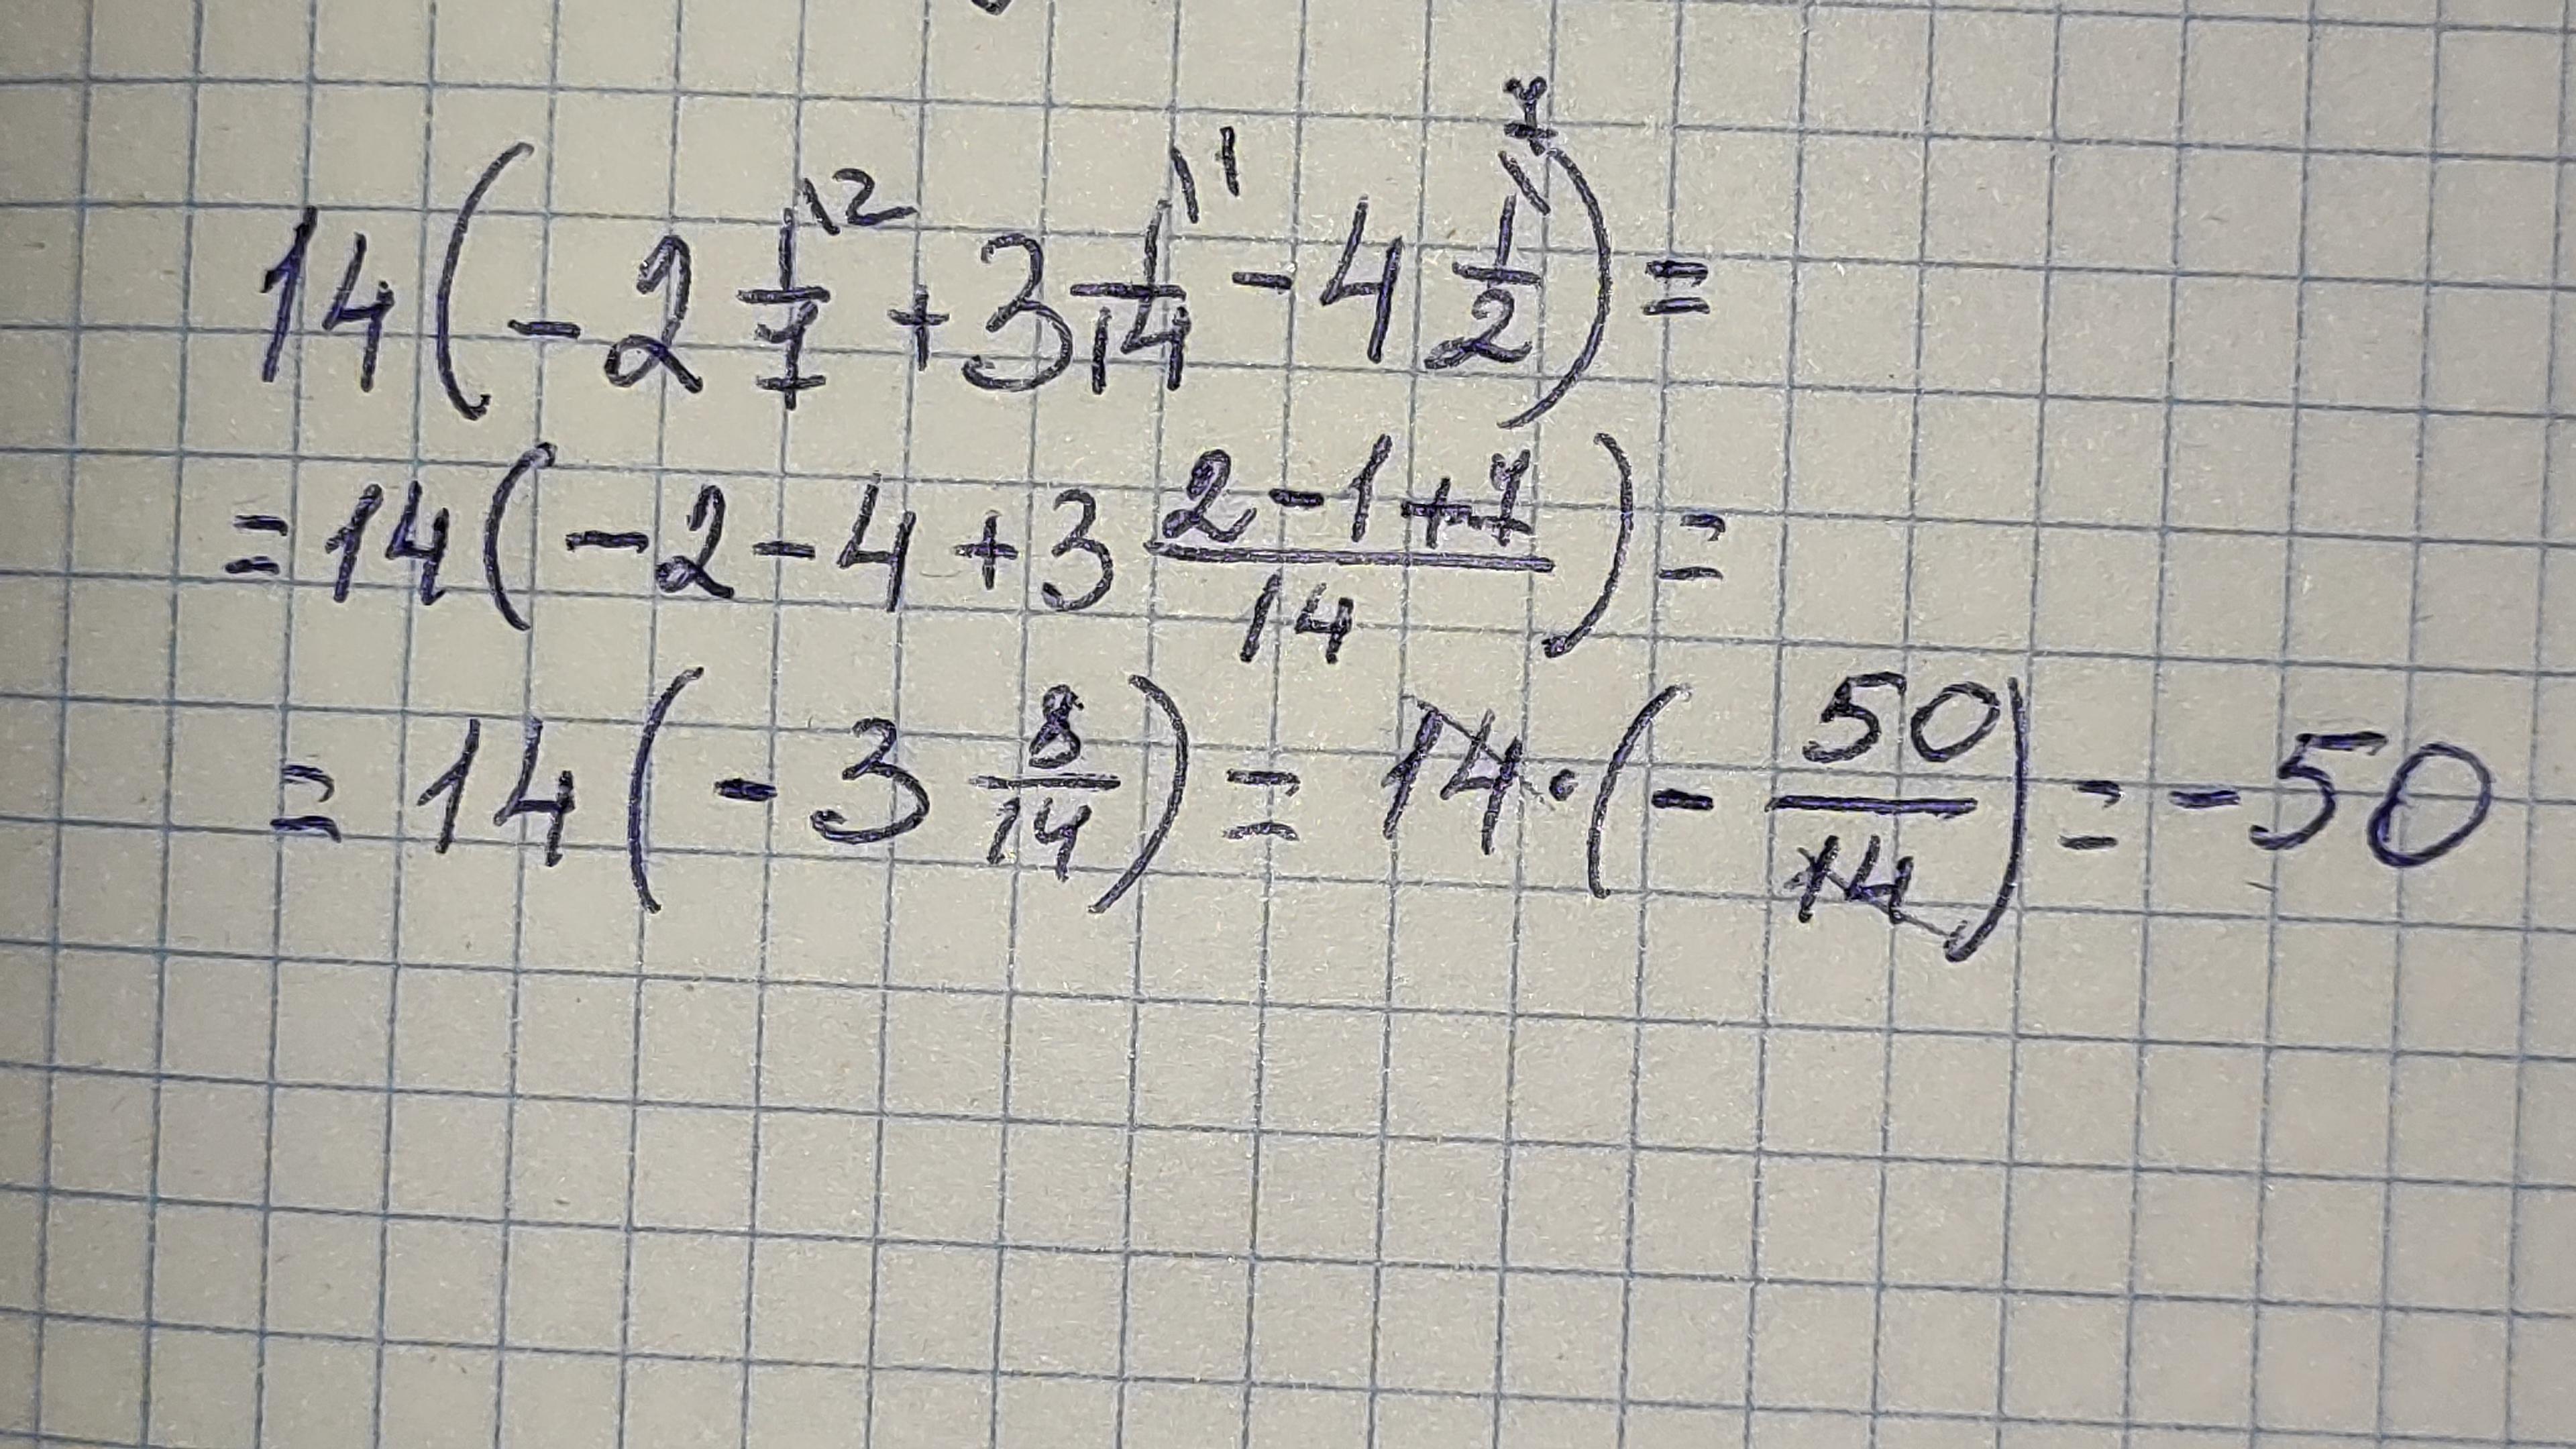 14(-2 1/7\2 + 3 1/14\1 - 4 1/2\7) =
= 14(-2 - 4 + 3 (2-1+7)/14) =
= 14(-3 8/14) = 14 · (-50/14) = -50